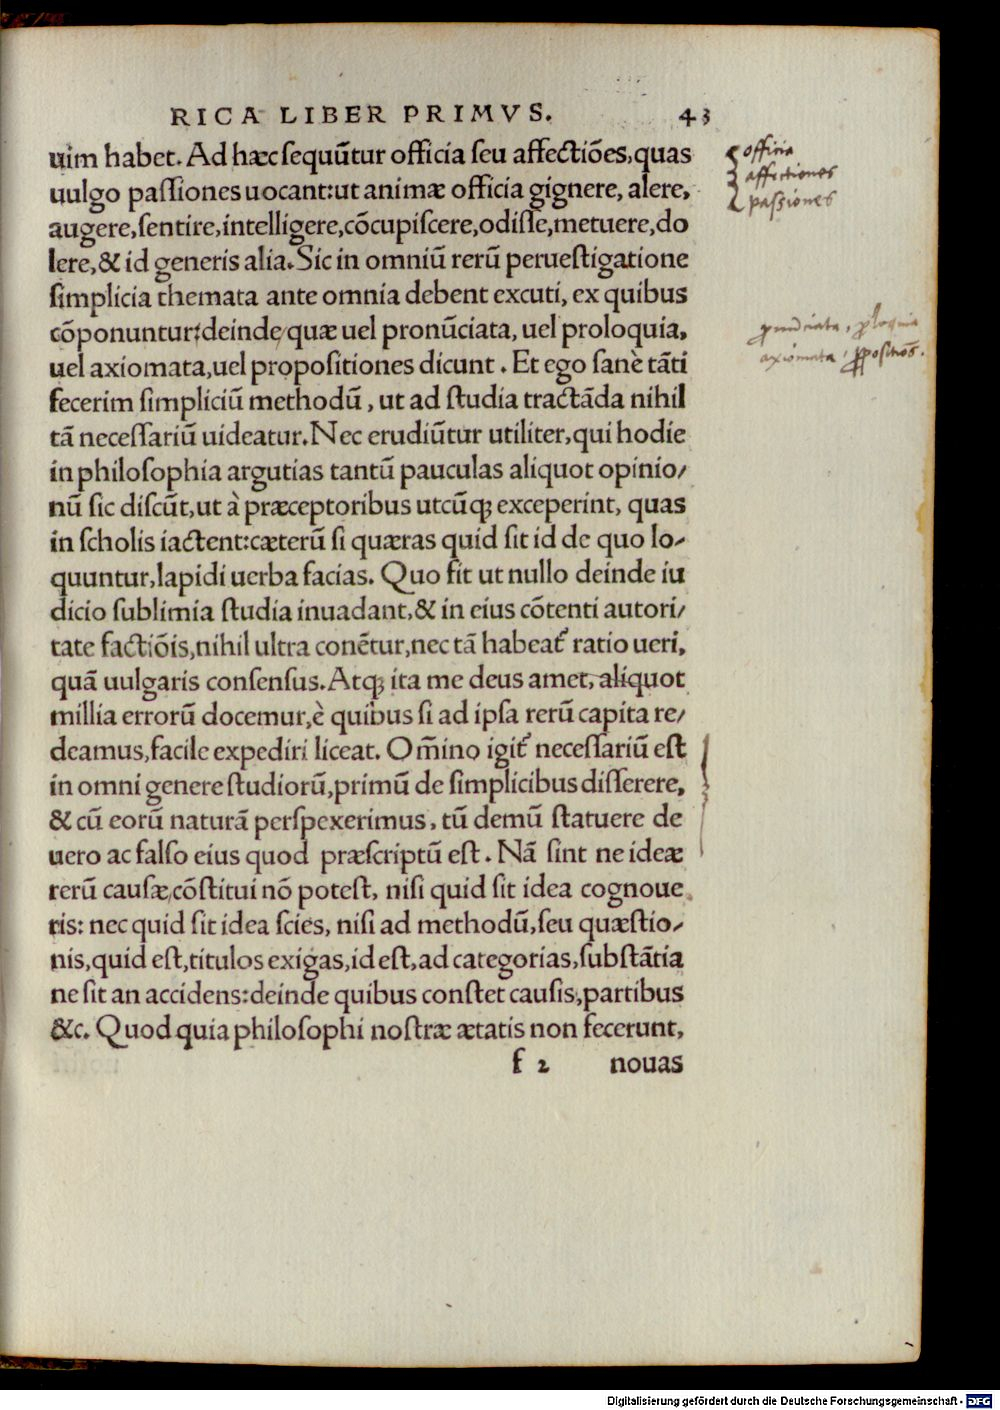 RICA LIBER PRIMVS. 43
uim habet. Ad hæc sequūtur officia seu affectiōes, quas
uulgo passiones uocant: ut animæ officia gignere, alere,
augere, sentire, intelligere, cōcupiscere, odisse, metuere, do
lere, & id generis alia. Sic in omniū rerū peruestigatione
simplicia themata ante omnia debent excuti, ex quibus
cōponuntur: deinde quæ uel pronūciata, uel proloquia,
uel axiomata, uel propositiones dicunt. Et ego sanè tāti
fecerim simpliciū methodū, ut ad studia tractāda nihil
tā necessariū uideatur. Nec erudiūtur utiliter, qui hodie
in philosophia argutias tantū pauculas aliquot opinio/
nū sic discūt, ut à præceptoribus utcūqꝫ exceperint, quas
in scholis iactent: cæterū si quæras quid sit id de quo lo/
quuntur, lapidi uerba facias. Quo fit ut nullo deinde iu
dicio sublimia studia inuadant, & in eius cōtenti autori/
tate factiōis, nihil ultra conētur, nec tā habeat᷑ ratio ueri,
quā uulgaris consensus. Atqꝫ ita me deus amet, aliquot
millia errorū docemur, è quibus si ad ipsa rerū capita re/
deamus, facile expediri liceat. Om̄ino igit᷑ necessariū est
in omni genere studiorū, primū de simplicibus disserere,
& cū eorū naturā perspexerimus, tū demū statuere de
uero ac falso eius quod præscriptū est. Nā sint ne ideæ
rerū causæ, cōstitui nō potest, nisi quid sit idea cognoue
ris: nec quid sit idea scies, nisi ad methodū, seu quæstio/
nis, quid est, titulos exigas, id est, ad categorias, substātia
ne sit an accidens: deinde quibus constet causis, partibus
&c. Quod quia philosophi nostræ ætatis non fecerunt,
f 2 nouas
officia
affectiones
passiones
ꝓnūciata, ꝓloquia
axiomata, ꝓpositiōs.
Digitalisierung gefördert durch die Deutsche Forschungsgemeinschaft - DFG